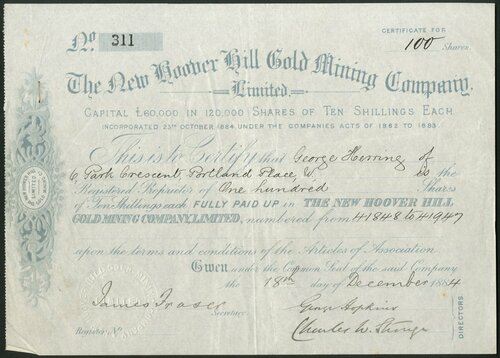 CERTIFICATE FOR
No. 311
100 Shares.
The New Hoover Hill Gold Mining Company,
Limited.
CAPITAL £60,000 IN 120,000 SHARES OF TEN SHILLINGS EACH.
INCORPORATED 23RD OCTOBER 1884, UNDER THE COMPANIES ACTS OF 1862 TO 1883.
This is to Certify that George Herring of
6 Park Crescent, Portland Place, W. is the
Registered Proprietor of One hundred Shares
of Ten Shillings each FULLY PAID UP in THE NEW HOOVER HILL
GOLD MINING COMPANY, LIMITED, numbered from 41848 to 41947
upon the terms and conditions of the Articles of Association.
Given under the Common Seal of the said Company
the 18th day of December 1884
James Fraser
Secretary.
George Hopkins
Charles W.
Register No.
DIRECTORS.